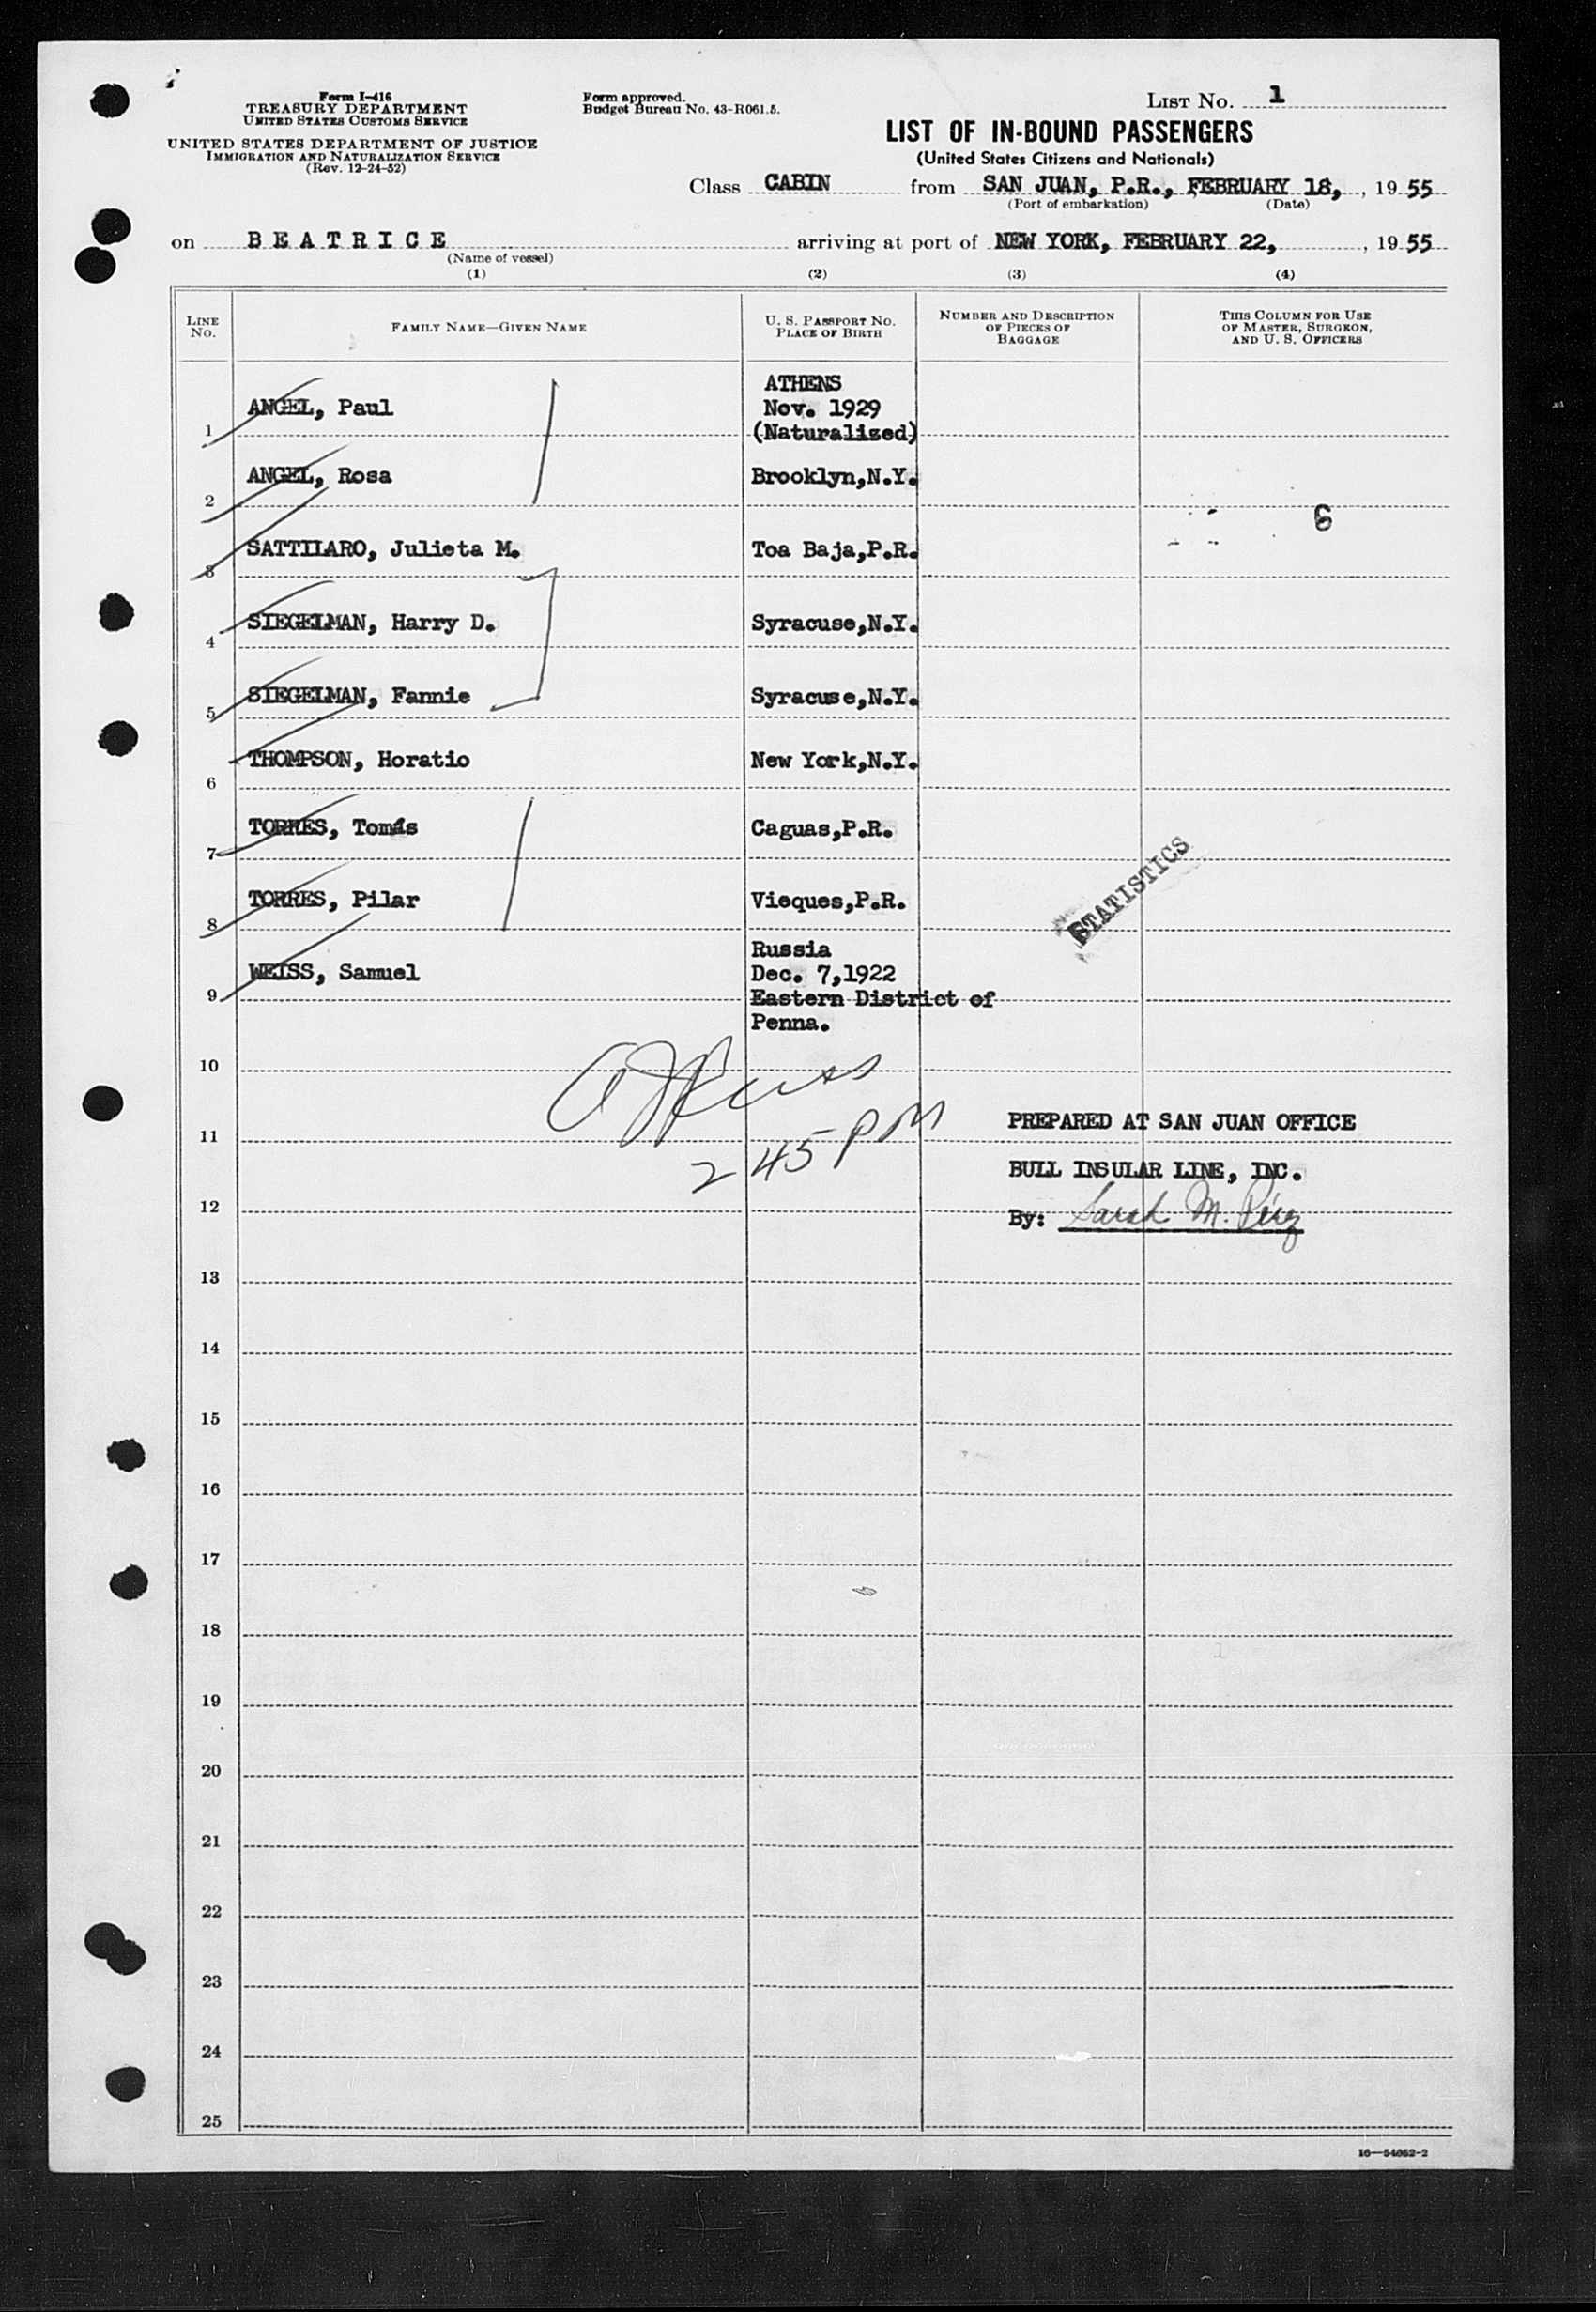 Form I-416
TREASURY DEPARTMENT
UNITED STATES CUSTOMS SERVICE
UNITED STATES DEPARTMENT OF JUSTICE
IMMIGRATION AND NATURALIZATION SERVICE
(Rev. 12-24-52)
Form approved.
Budget Bureau No. 43-R061.5.
LIST No. 1
LIST OF IN-BOUND PASSENGERS
(United States Citizens and Nationals)
Class CABIN from SAN JUAN, P.R., FEBRUARY 18, , 1955
(Port of embarkation) (Date)
on BEATRICE arriving at port of NEW YORK, FEBRUARY 22, , 1955
(Name of vessel)
(1) (2) (3) (4)
LINE No. FAMILY NAME—GIVEN NAME U. S. PASSPORT NO. PLACE OF BIRTH NUMBER AND DESCRIPTION OF PIECES OF BAGGAGE THIS COLUMN FOR USE OF MASTER, SURGEON, AND U. S. OFFICERS
ATHENS
1 ANGEL, Paul Nov. 1929
(Naturalized)
2 ANGEL, Rosa Brooklyn,N.Y.
3 SATTILARO, Julieta M. Toa Baja,P.R.
4 SIEGELMAN, Harry D. Syracuse,N.Y.
5 SIEGELMAN, Fannie Syracuse,N.Y.
6 THOMPSON, Horatio New York,N.Y.
7 TORRES, Tomás Caguas,P.R.
8 TORRES, Pilar Vieques,P.R.
STATISTICS
Russia
9 WEISS, Samuel Dec. 7,1922
Eastern District of
Penna.
10
11 PREPARED AT SAN JUAN OFFICE
2 45 PM
BULL INSULAR LINE, INC.
12 By: Sarah M. Pérez
13
14
15
16
17
18
19
20
21
22
23
24
25
16—54652-2